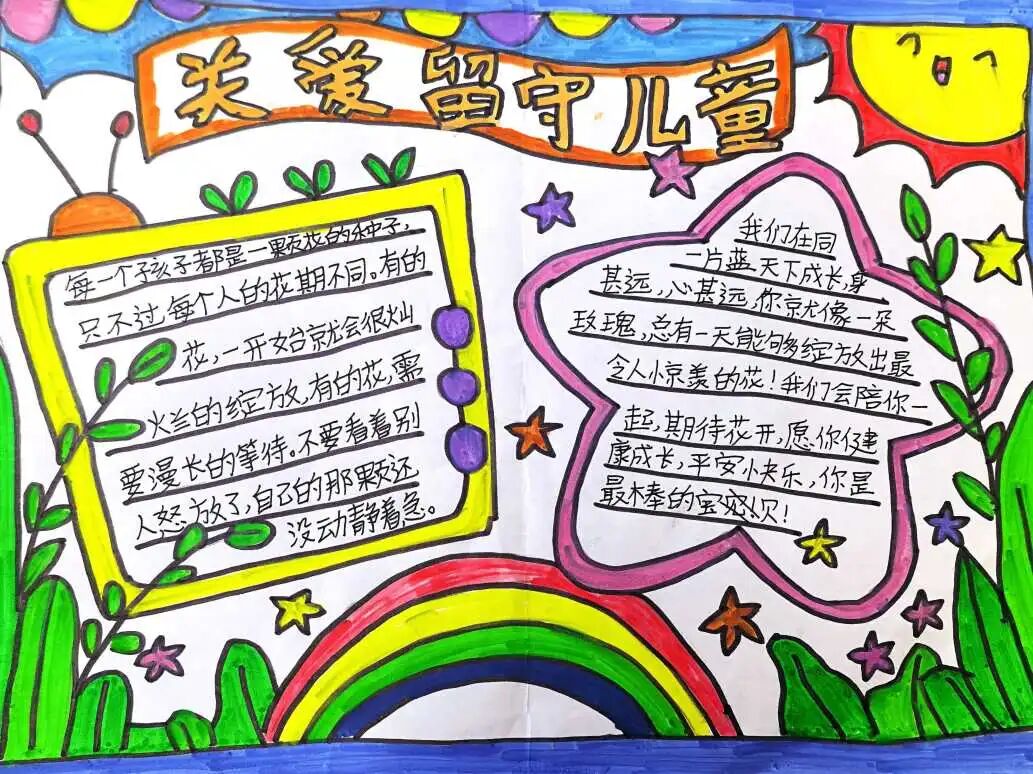 关爱留守儿童
每一个孩子都是一颗花的种子,
只不过每个人的花期不同。有的
花,一开始就会很灿
烂的绽放,有的花,需
要漫长的等待。不要看着别
人怒放了,自己的那颗还
没动静着急。
我们在同
一片蓝天下成长,身
甚远,心甚远,你就像一朵
玫瑰,总有一天能够绽放出最
令人惊羡的花!我们会陪你一
起,期待花开,愿你健
康成长,平安快乐,你是
最棒的宝贝!